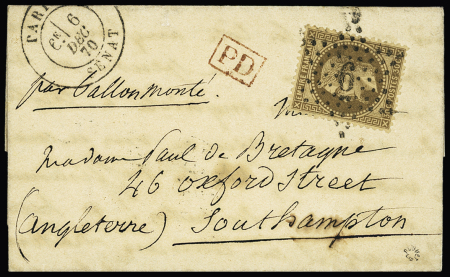 PARIS
SENAT
6
DEC
70
PD
par Ballon monté.
6
Madame Paul de Bretagne
46 oxford Street
(Angleterre) Southampton